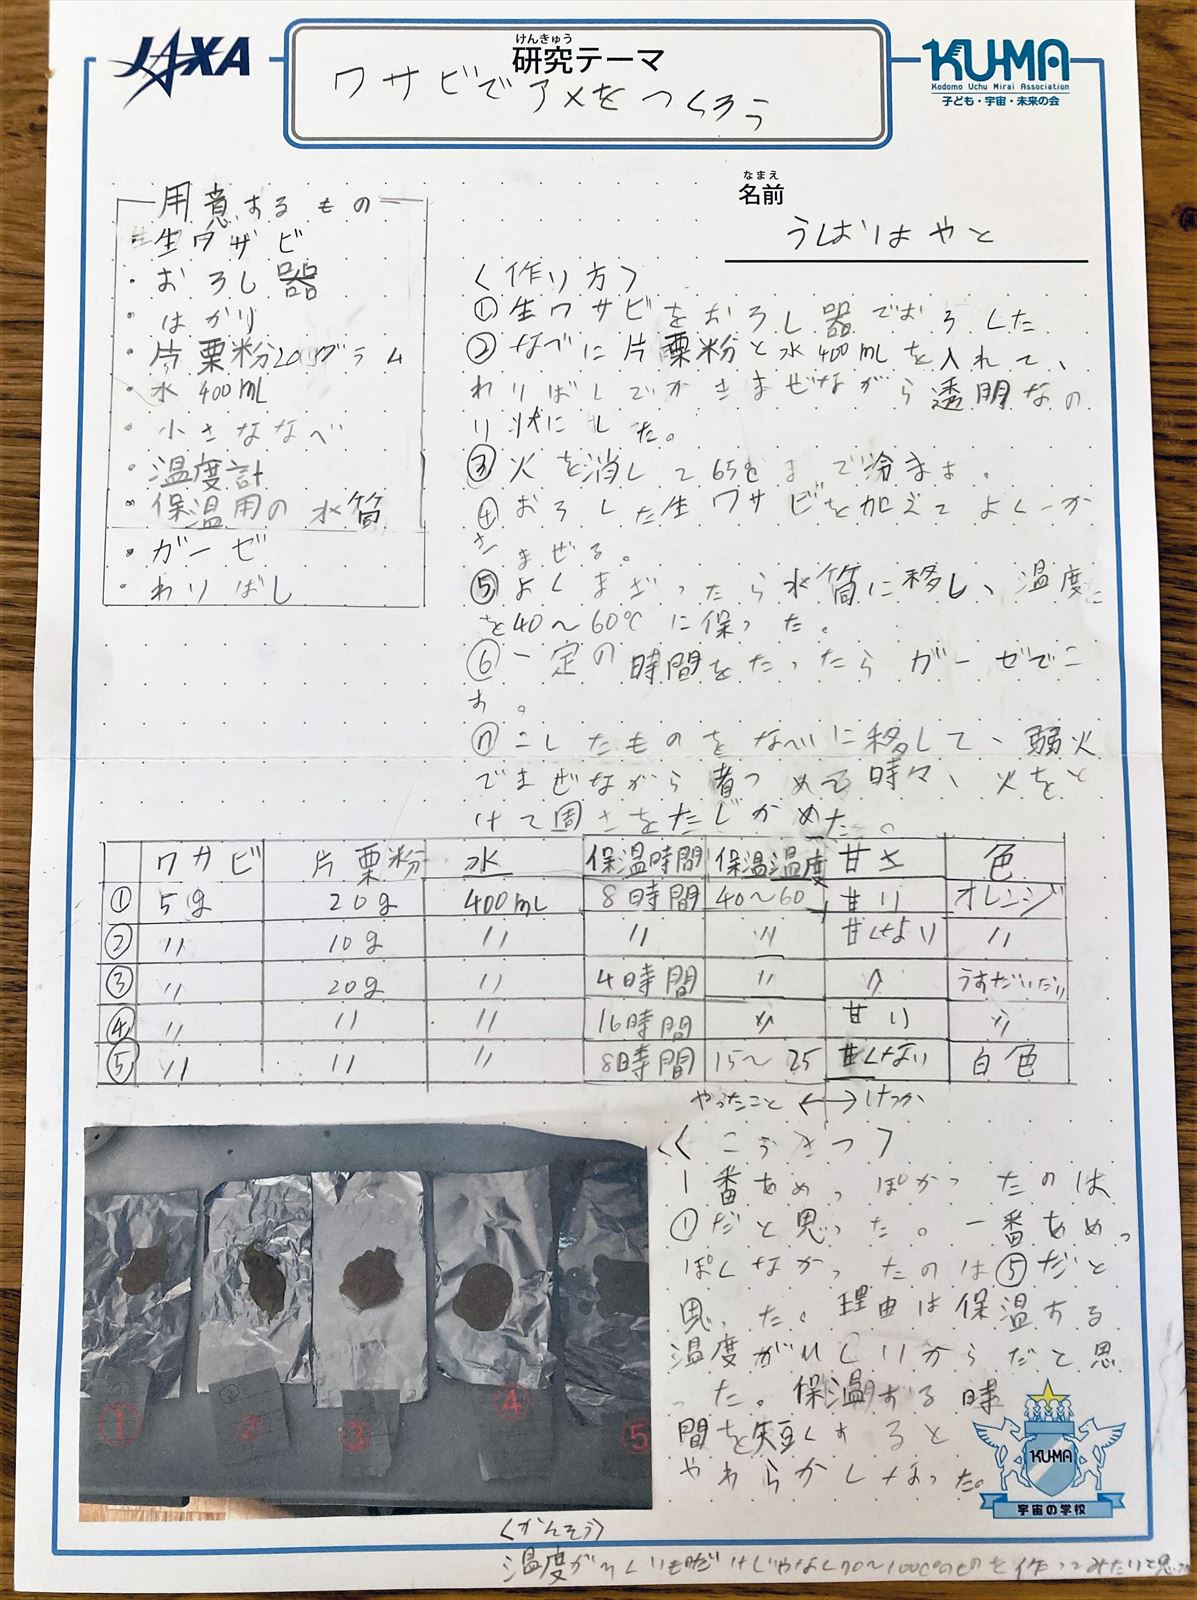 JAXA
けんきゅう
研究テーマ
ワサビでアメをつくろう
KU-MA
Kodomo Uchu Mirai Association
子ども・宇宙・未来の会
なまえ
名前
うしおはやと
用意するもの
・生ワサビ
・おろし器
・はかり
・片栗粉20グラム
・水400mL
・小さななべ
・温度計
・保温用の水筒
・ガーゼ
・わりばし
〈作り方〉
①生ワサビをおろし器でおろした
②なべに片栗粉と水400mLを入れて、
わりばしでかきまぜながら透明なの
り状にした。
③火を消して65℃まで冷ます。
④おろした生ワサビを加えてよーくか
きまぜる。
⑤よくまざったら水筒に移し、温度
を40〜60℃に保った。
⑥一定の時間をたったらガーゼでこ
す。
⑦こしたものをなべに移して、弱火
でまぜながら煮つめて時々、火を
けて固さをたしかめた。
ワサビ 片栗粉 水 保温時間 保温温度 甘さ 色
① 5g 20g 400mL 8時間 40〜60 甘い オレンジ
② 〃 10g 〃 〃 〃 甘くない 〃
③ 〃 20g 〃 4時間 〃 〃 うすだいだい
④ 〃 〃 〃 16時間 〃 甘い 〃
⑤ 〃 〃 〃 8時間 15〜25 甘くない 白色
やったこと ←→ けっか
① ② ③ ④ ⑤
〈こうさつ〉
1番あめっぽかったのは
①だと思った。一番あめっ
ぽくなかったのは⑤だと
思った。理由は保温する
温度がひくいからだと思
った。保温する時
間を短くすると
やわらかくなった。
KU-MA
宇宙の学校
〈かんそう〉
温度がひくいものだけじゃなく70〜100℃のものを作ってみたいと思